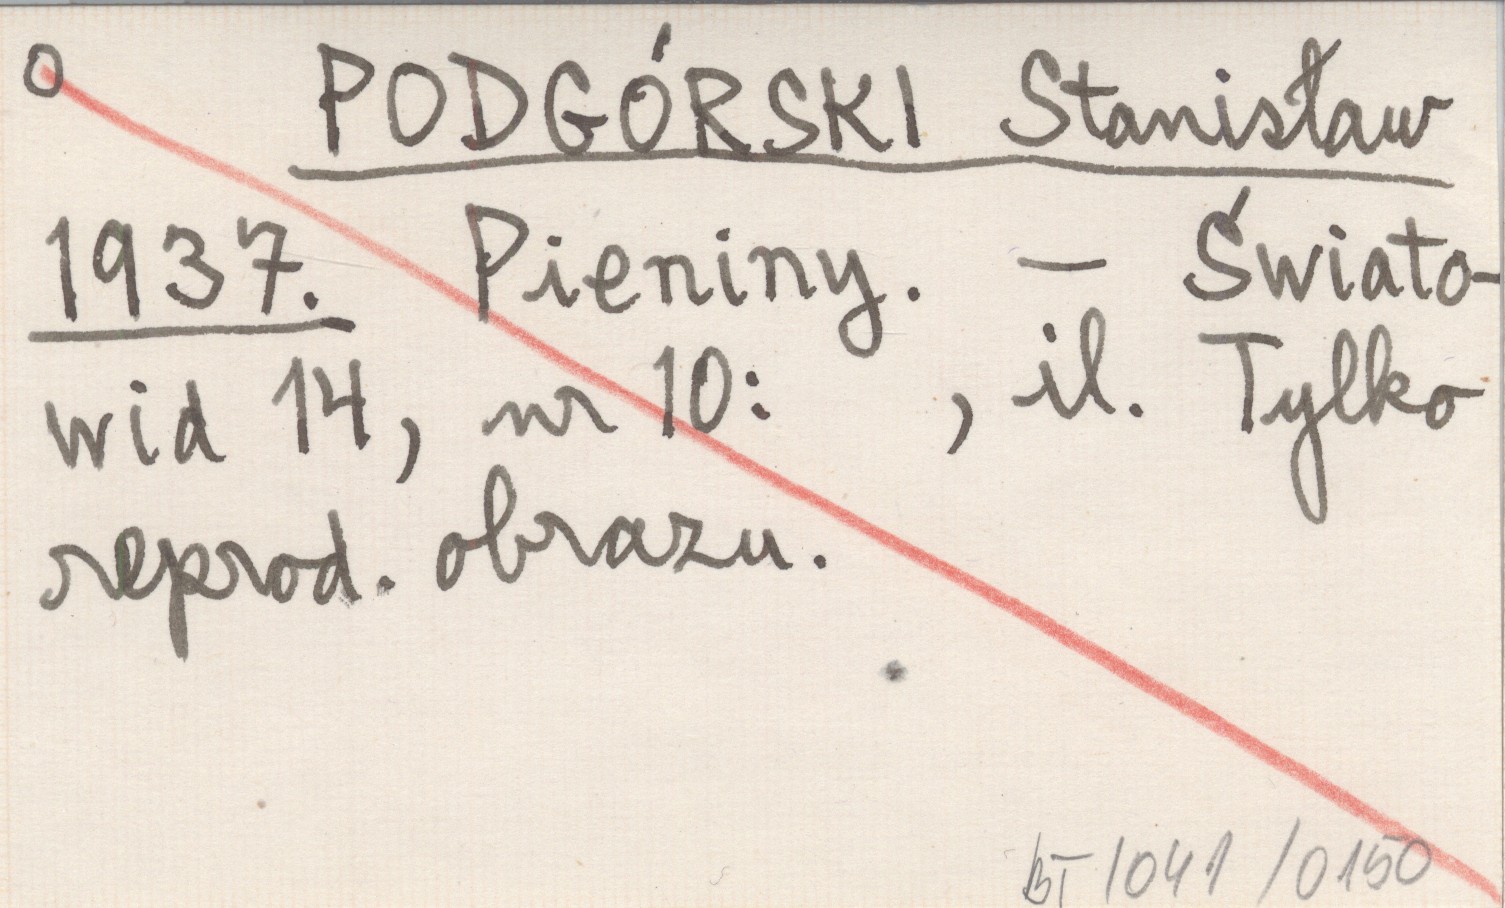 O PODGÓRSKI Stanisław
1937. Pieniny. — Świato-
wid 14, nr 10: , il. Tylko
reprod. obrazu.
BT/041/0150